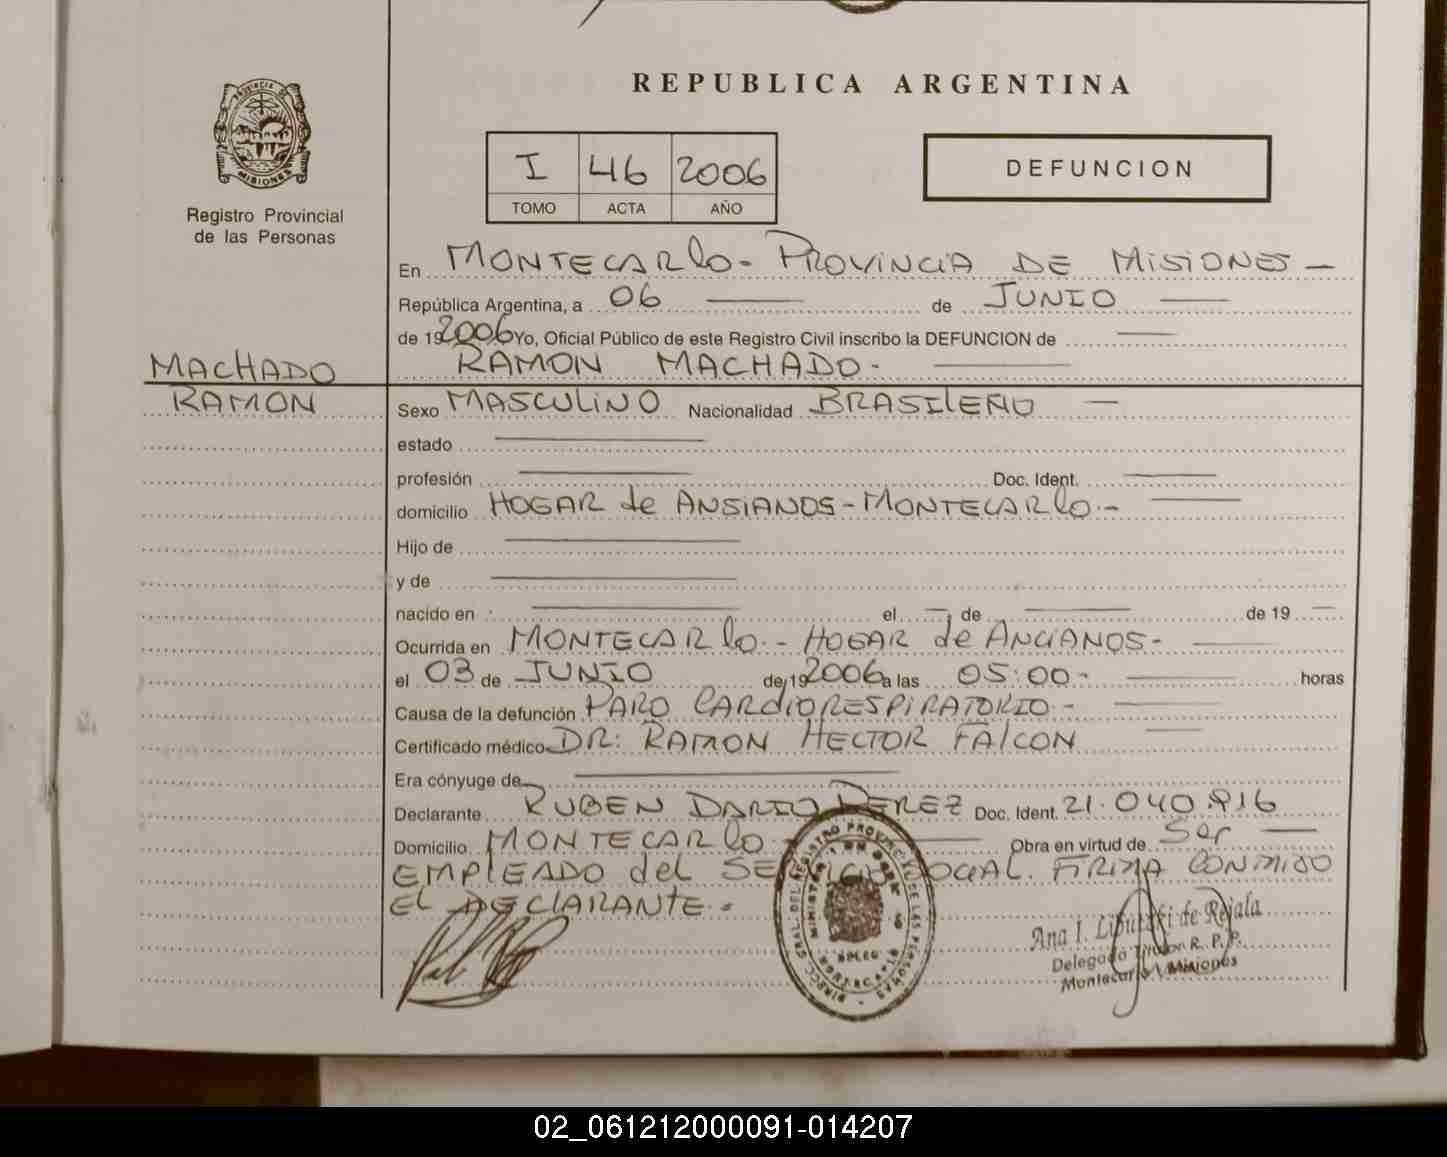 REPUBLICA ARGENTINA
PROVINCIA DE
MISIONES
Registro Provincial
de las Personas
I 46 2006
TOMO ACTA AÑO
DEFUNCION
En MONTECARlo - PROVINCIA DE MISIONES -
República Argentina, a 06 de JUNIO
de 19 2006 Yo, Oficial Público de este Registro Civil inscribo la DEFUNCION de
MACHADO
RAMON MACHADO -
RAMON
Sexo MASCULINO Nacionalidad BRASILEÑO
estado
profesión Doc. Ident.
domicilio HOGAR de ANSIANOS - MONTECARlo -
Hijo de
y de
nacido en el de de 19
Ocurrida en MONTECARlo - HOGAR de ANCIANOS -
el 03 de JUNIO de 19 2006 a las 05:00 - horas
Causa de la defunción PARO CARdIORESPIRATORIO -
Certificado médico DR: RAMON HECTOR FAlCON
Era cónyuge de
Declarante RUBEN DARIO PEREZ Doc. Ident. 21.040.916
Domicilio MONTECARlo - Obra en virtud de Ser
EMPlEADO del SERVICIO SOCIAL. FIRMA CONMIGO
EL DEClARANTE -
Ana I. de Rejala
Delegado Titular R. P. P.
Montecarlo Misiones
02_061212000091-014207